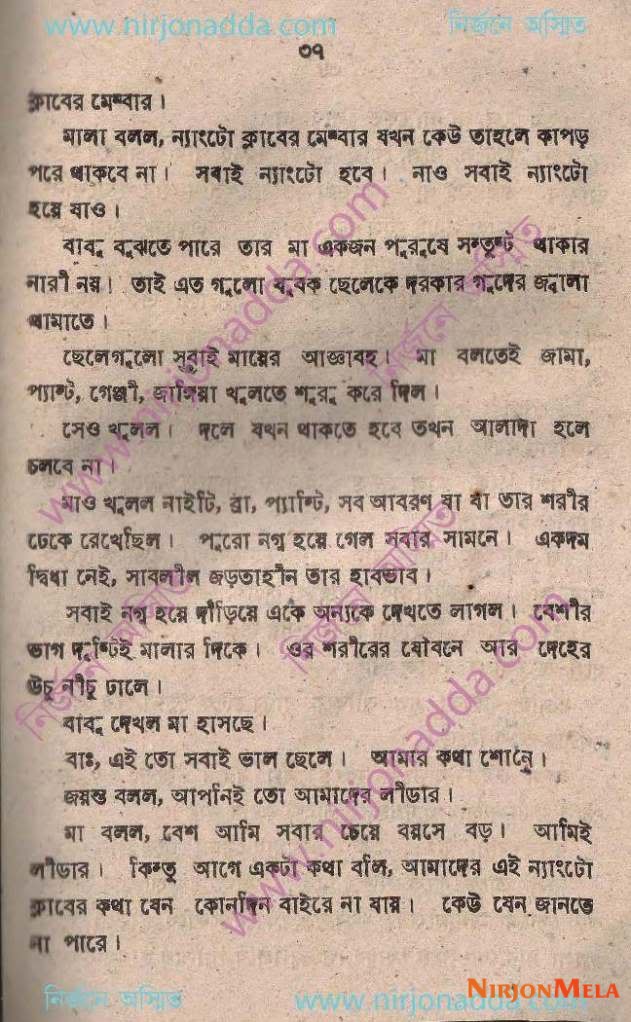 www.nirjonadda.com নির্জনে অস্মিত
৩৭
ক্লাবের মেম্বার।
মালা বলল, ন্যাংটো ক্লাবের মেম্বার যখন কেউ তাহলে কাপড়
পরে থাকবে না। সবাই ন্যাংটো হবে। নাও সবাই ন্যাংটো
হয়ে যাও।
বাবু বুঝতে পারে তার মা একজন পুরুষে সন্তুষ্ট থাকার
নারী নয়। তাই এত গুলো যুবক ছেলেকে দরকার গুদের জ্বালা
থামাতে।
ছেলেগুলো সবাই মায়ের আজ্ঞাবহ। মা বলতেই জামা,
প্যান্ট, গেঞ্জী, জাঙ্গিয়া খুলতে শুরু করে দিল।
সেও খুলল। দলে যখন থাকতে হবে তখন আলাদা হলে
চলবে না।
মাও খুলল নাইটি, ব্রা, প্যান্টি, সব আবরণ যা যা তার শরীর
ঢেকে রেখেছিল। পুরো নগ্ন হয়ে গেল সবার সামনে। একদম
দ্বিধা নেই, সাবলীল জড়তাহীন তার হাবভাব।
সবাই নগ্ন হয়ে দাঁড়িয়ে একে অন্যকে দেখতে লাগল। বেশীর
ভাগ দৃষ্টিই মালার দিকে। ওর শরীরের যৌবনে আর দেহের
উচু নীচু ঢালে।
বাবু দেখল মা হাসছে।
বাঃ, এই তো সবাই ভাল ছেলে। আমার কথা শোনে।
জয়ন্ত বলল, আপনিই তো আমাদের লীডার।
মা বলল, বেশ আমি সবার চেয়ে বয়সে বড়। আমিই
লীডার। কিন্তু আগে একটা কথা বলি, আমাদের এই ন্যাংটো
ক্লাবের কথা যেন কোনদিন বাইরে না যায়। কেউ যেন জানতে
না পারে।
www.nirjonadda.com
নির্জনে অস্মিত
www.nirjonadda.com
নির্জনে অস্মিত
নির্জনে অস্মিত
NIRJONMELA
নির্জনে অস্মিত www.nirjonadda.com